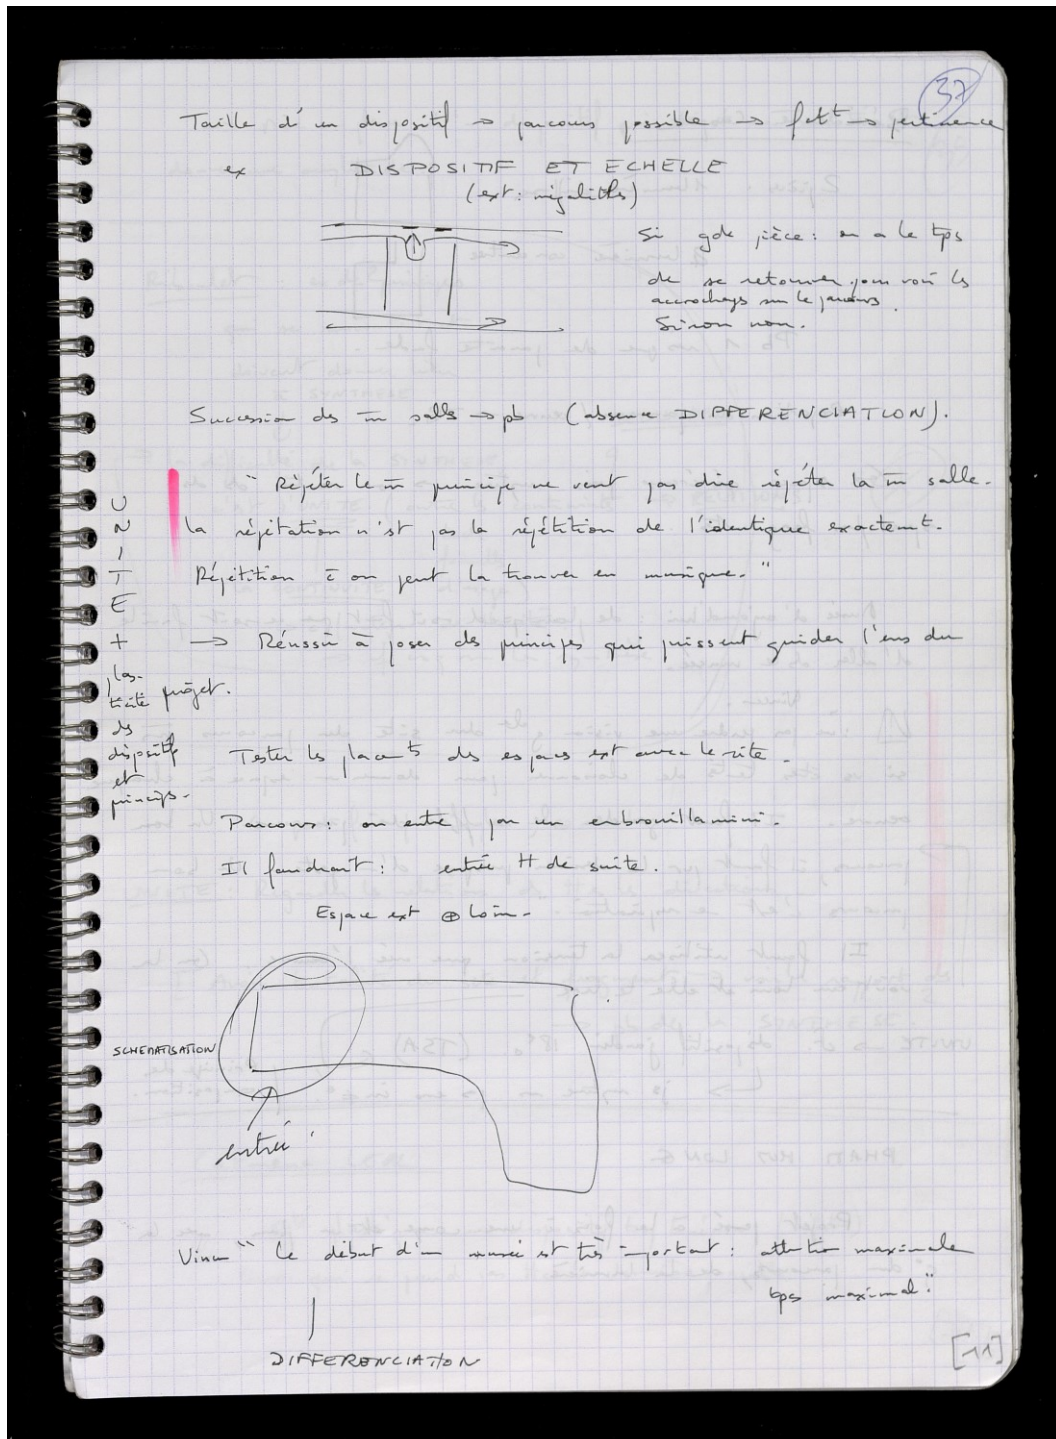 37
Taille d'un dispositif → parcours possible → fctt → pertinence
ex DISPOSITIF ET ECHELLE
(ext: mégalithes)
Si gde pièce: on a le tps
de se retourner pour voir les
accrochages sur le parcours.
Sinon non.
Succession des m̄ salles → pb (absence DIFFERENCIATION).
" Répéter le m̄ principe ne veut pas dire répéter la m̄ salle.
la répétation n'est pas la répétition de l'identique exactemt.
Répétition c̄ on peut la trouver en musique. "
→ Réussir à poser des principes qui puissent guider l'ens du
projet.
UNITE +
plas-
ticité
des
dispositifs
et
principes.
Tester les placemts des espaces ext avec le site.
Parcours: on entre par un embrouillamini.
Il faudrait: entrée H de suite.
Espace ext ⊕ loin.
SCHEMATISATION
entrée
" Le début d'un musée est très important: attention maximale
tps maximal "
DIFFERENCIATION
[11]